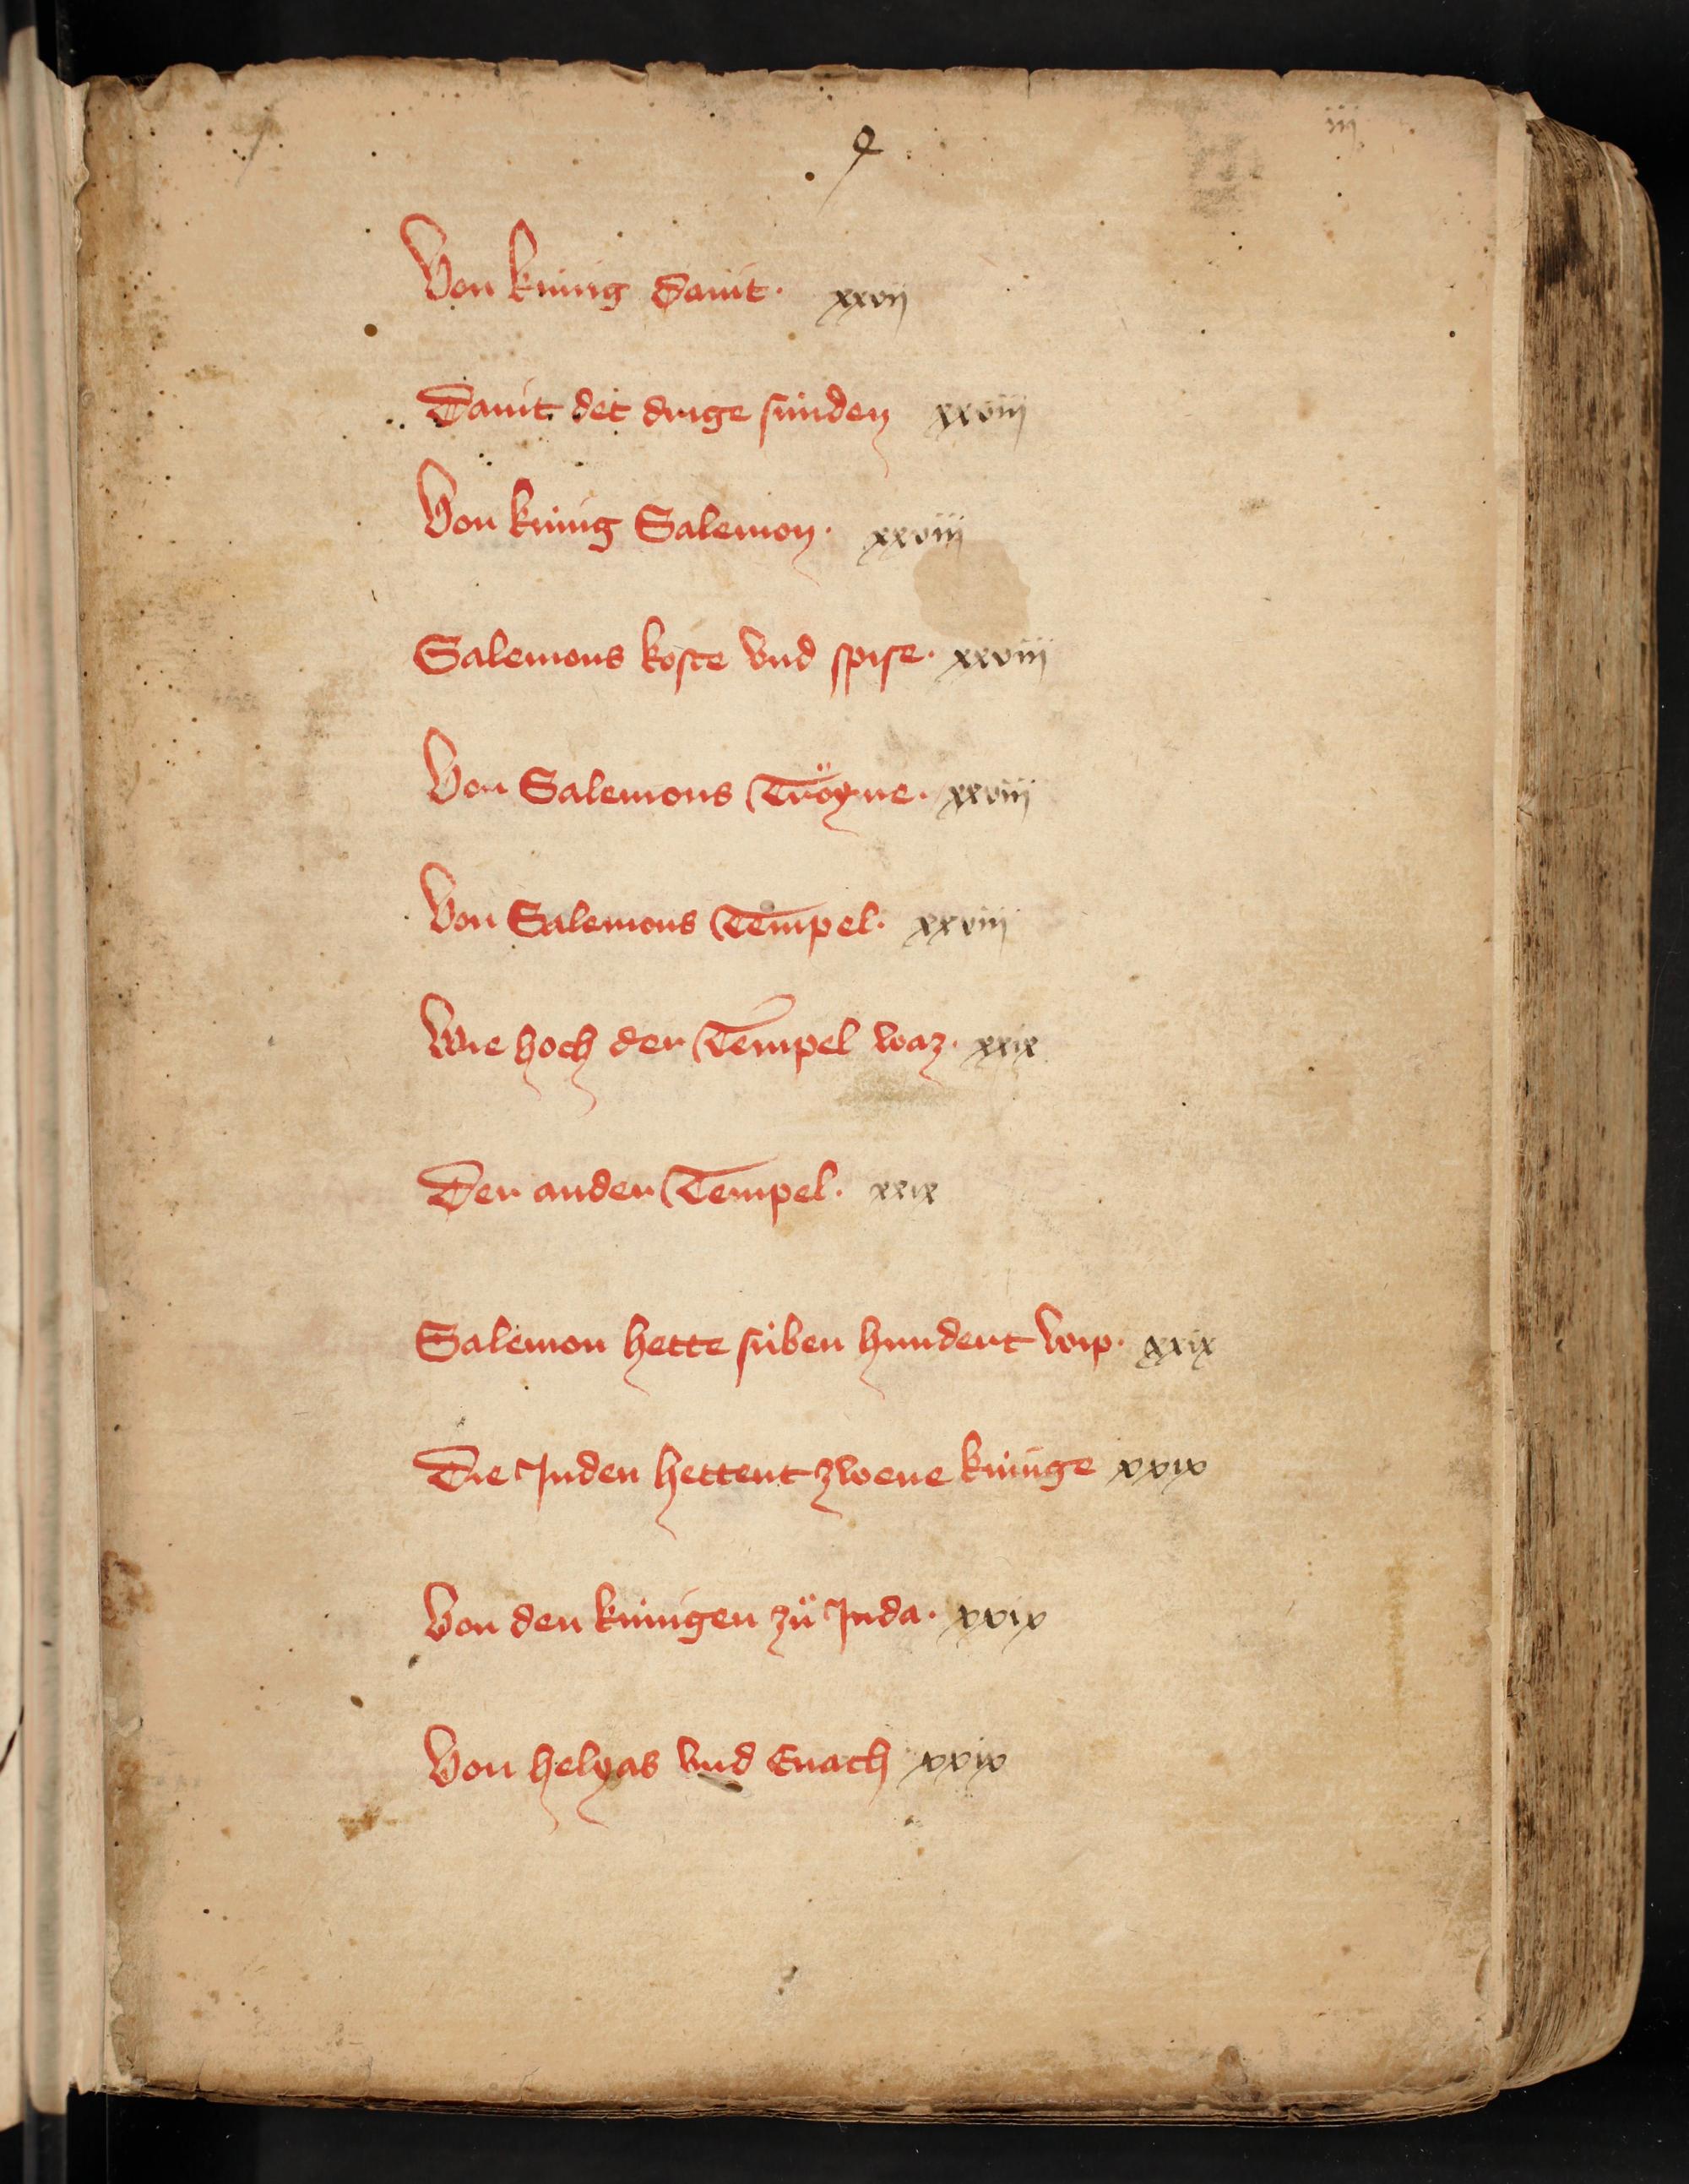 iij
Von kúnig Dauit. xxvij
Dauit det drige súnden xxviij
Von kúnig Salemon. xxviij
Salemons koste vnd spise. xxviij
Von Salemons Tröyne. xxviij
Von Salemons Tempel. xxviij
Wie hoch der Tempel waz. xxix
Der ander Tempel. xxix
Salemon hette súben hundert wip. xxix
Die Juden hettent zwene kúnige xxix
Von den kúnigen zü Juda. xxix
Von helyas vnd Enoch xxix